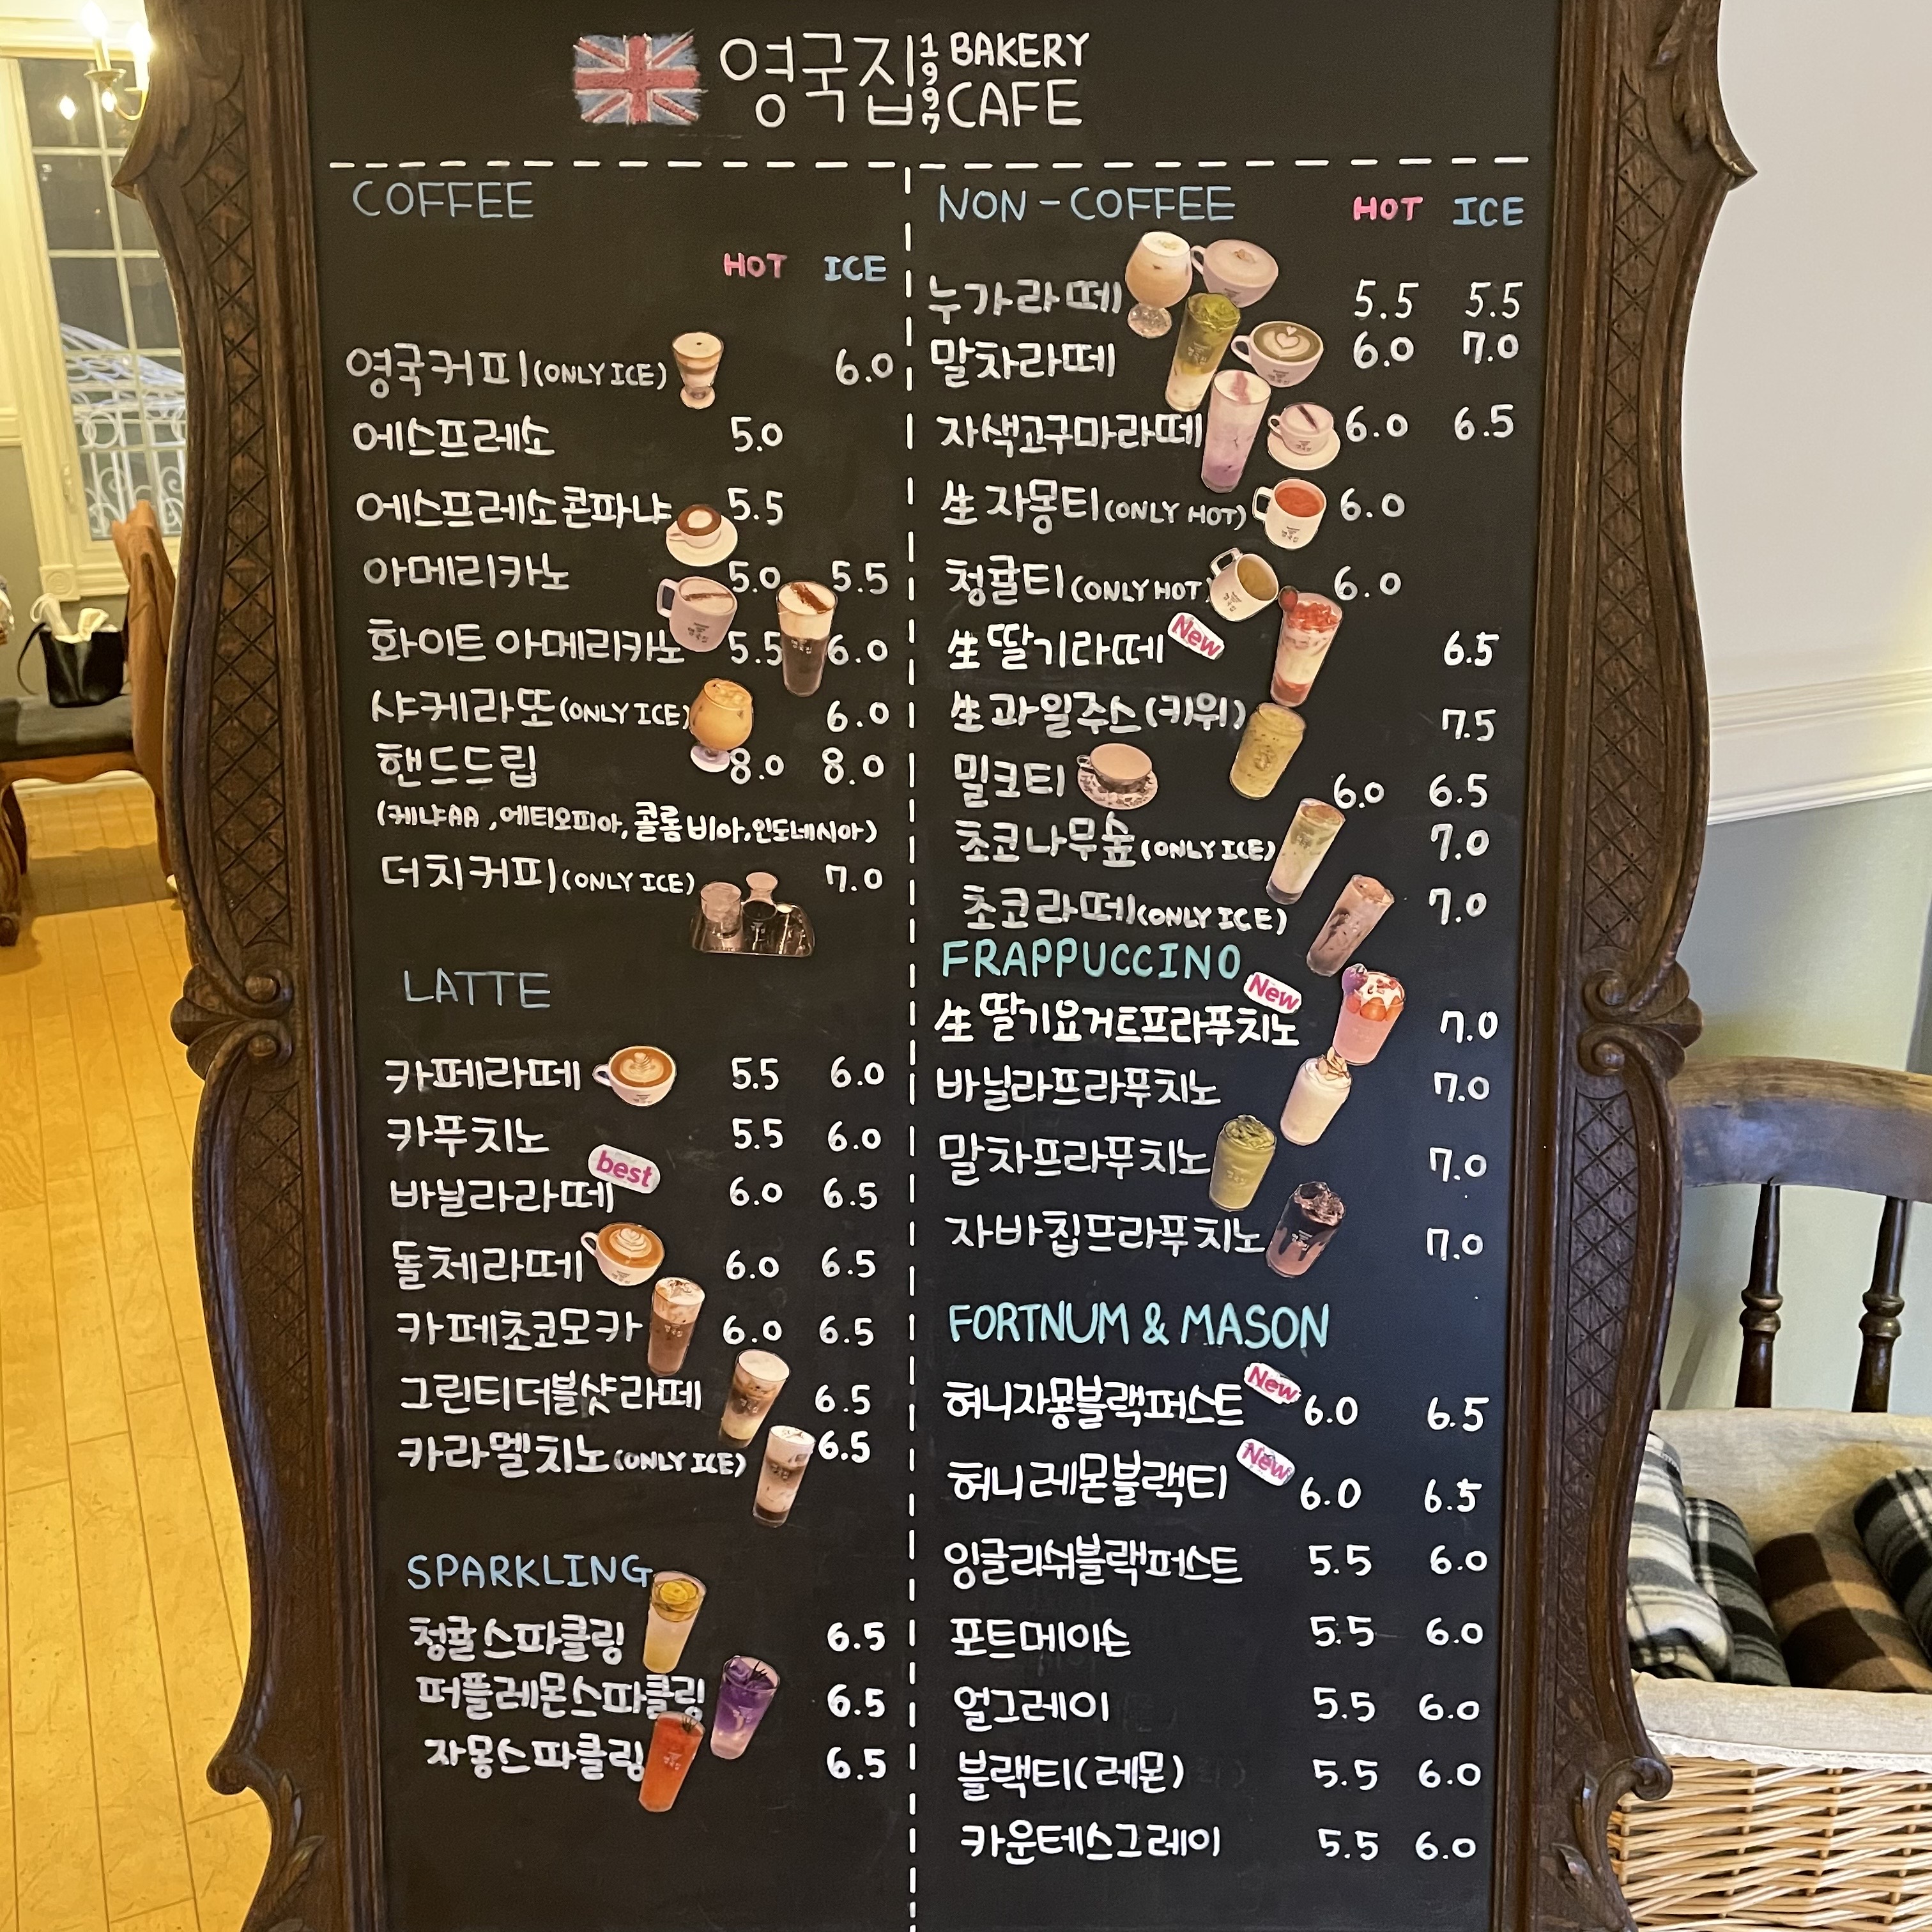 영국집 1997 BAKERY CAFE
COFFEE
HOT ICE
영국커피(ONLY ICE) 6.0
에스프레소 5.0
에스프레소콘파냐 5.5
아메리카노 5.0 5.5
화이트 아메리카노 5.5 6.0
샤케라또(ONLY ICE) 6.0
핸드드립 8.0 8.0
(케냐AA, 에티오피아, 콜롬비아, 인도네시아)
더치커피(ONLY ICE) 7.0
LATTE
카페라떼 5.5 6.0
카푸치노 5.5 6.0
best
바닐라라떼 6.0 6.5
돌체라떼 6.0 6.5
카페초코모카 6.0 6.5
그린티더블샷라떼 6.5
카라멜치노(ONLY ICE) 6.5
SPARKLING
청귤스파클링 6.5
퍼플레몬스파클링 6.5
자몽스파클링 6.5
NON-COFFEE HOT ICE
누가라떼 5.5 5.5
말차라떼 6.0 7.0
자색고구마라떼 6.0 6.5
生 자몽티(ONLY HOT) 6.0
청귤티(ONLY HOT) 6.0
生 딸기라떼 New 6.5
生 과일주스(키위) 7.5
밀크티 6.0 6.5
초코나무숲(ONLY ICE) 7.0
초코라떼(ONLY ICE) 7.0
FRAPPUCCINO
New
生 딸기요거트프라푸치노 7.0
바닐라프라푸치노 7.0
말차프라푸치노 7.0
자바칩프라푸치노 7.0
FORTNUM & MASON
허니자몽블랙퍼스트 New 6.0 6.5
허니레몬블랙티 New 6.0 6.5
잉글리쉬블랙퍼스트 5.5 6.0
포트메이슨 5.5 6.0
얼그레이 5.5 6.0
블랙티(레몬) 5.5 6.0
카운테스그레이 5.5 6.0